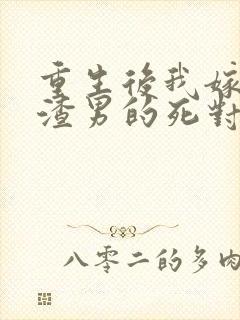 重生後我嫁
渣男的死對
八零二的多肉